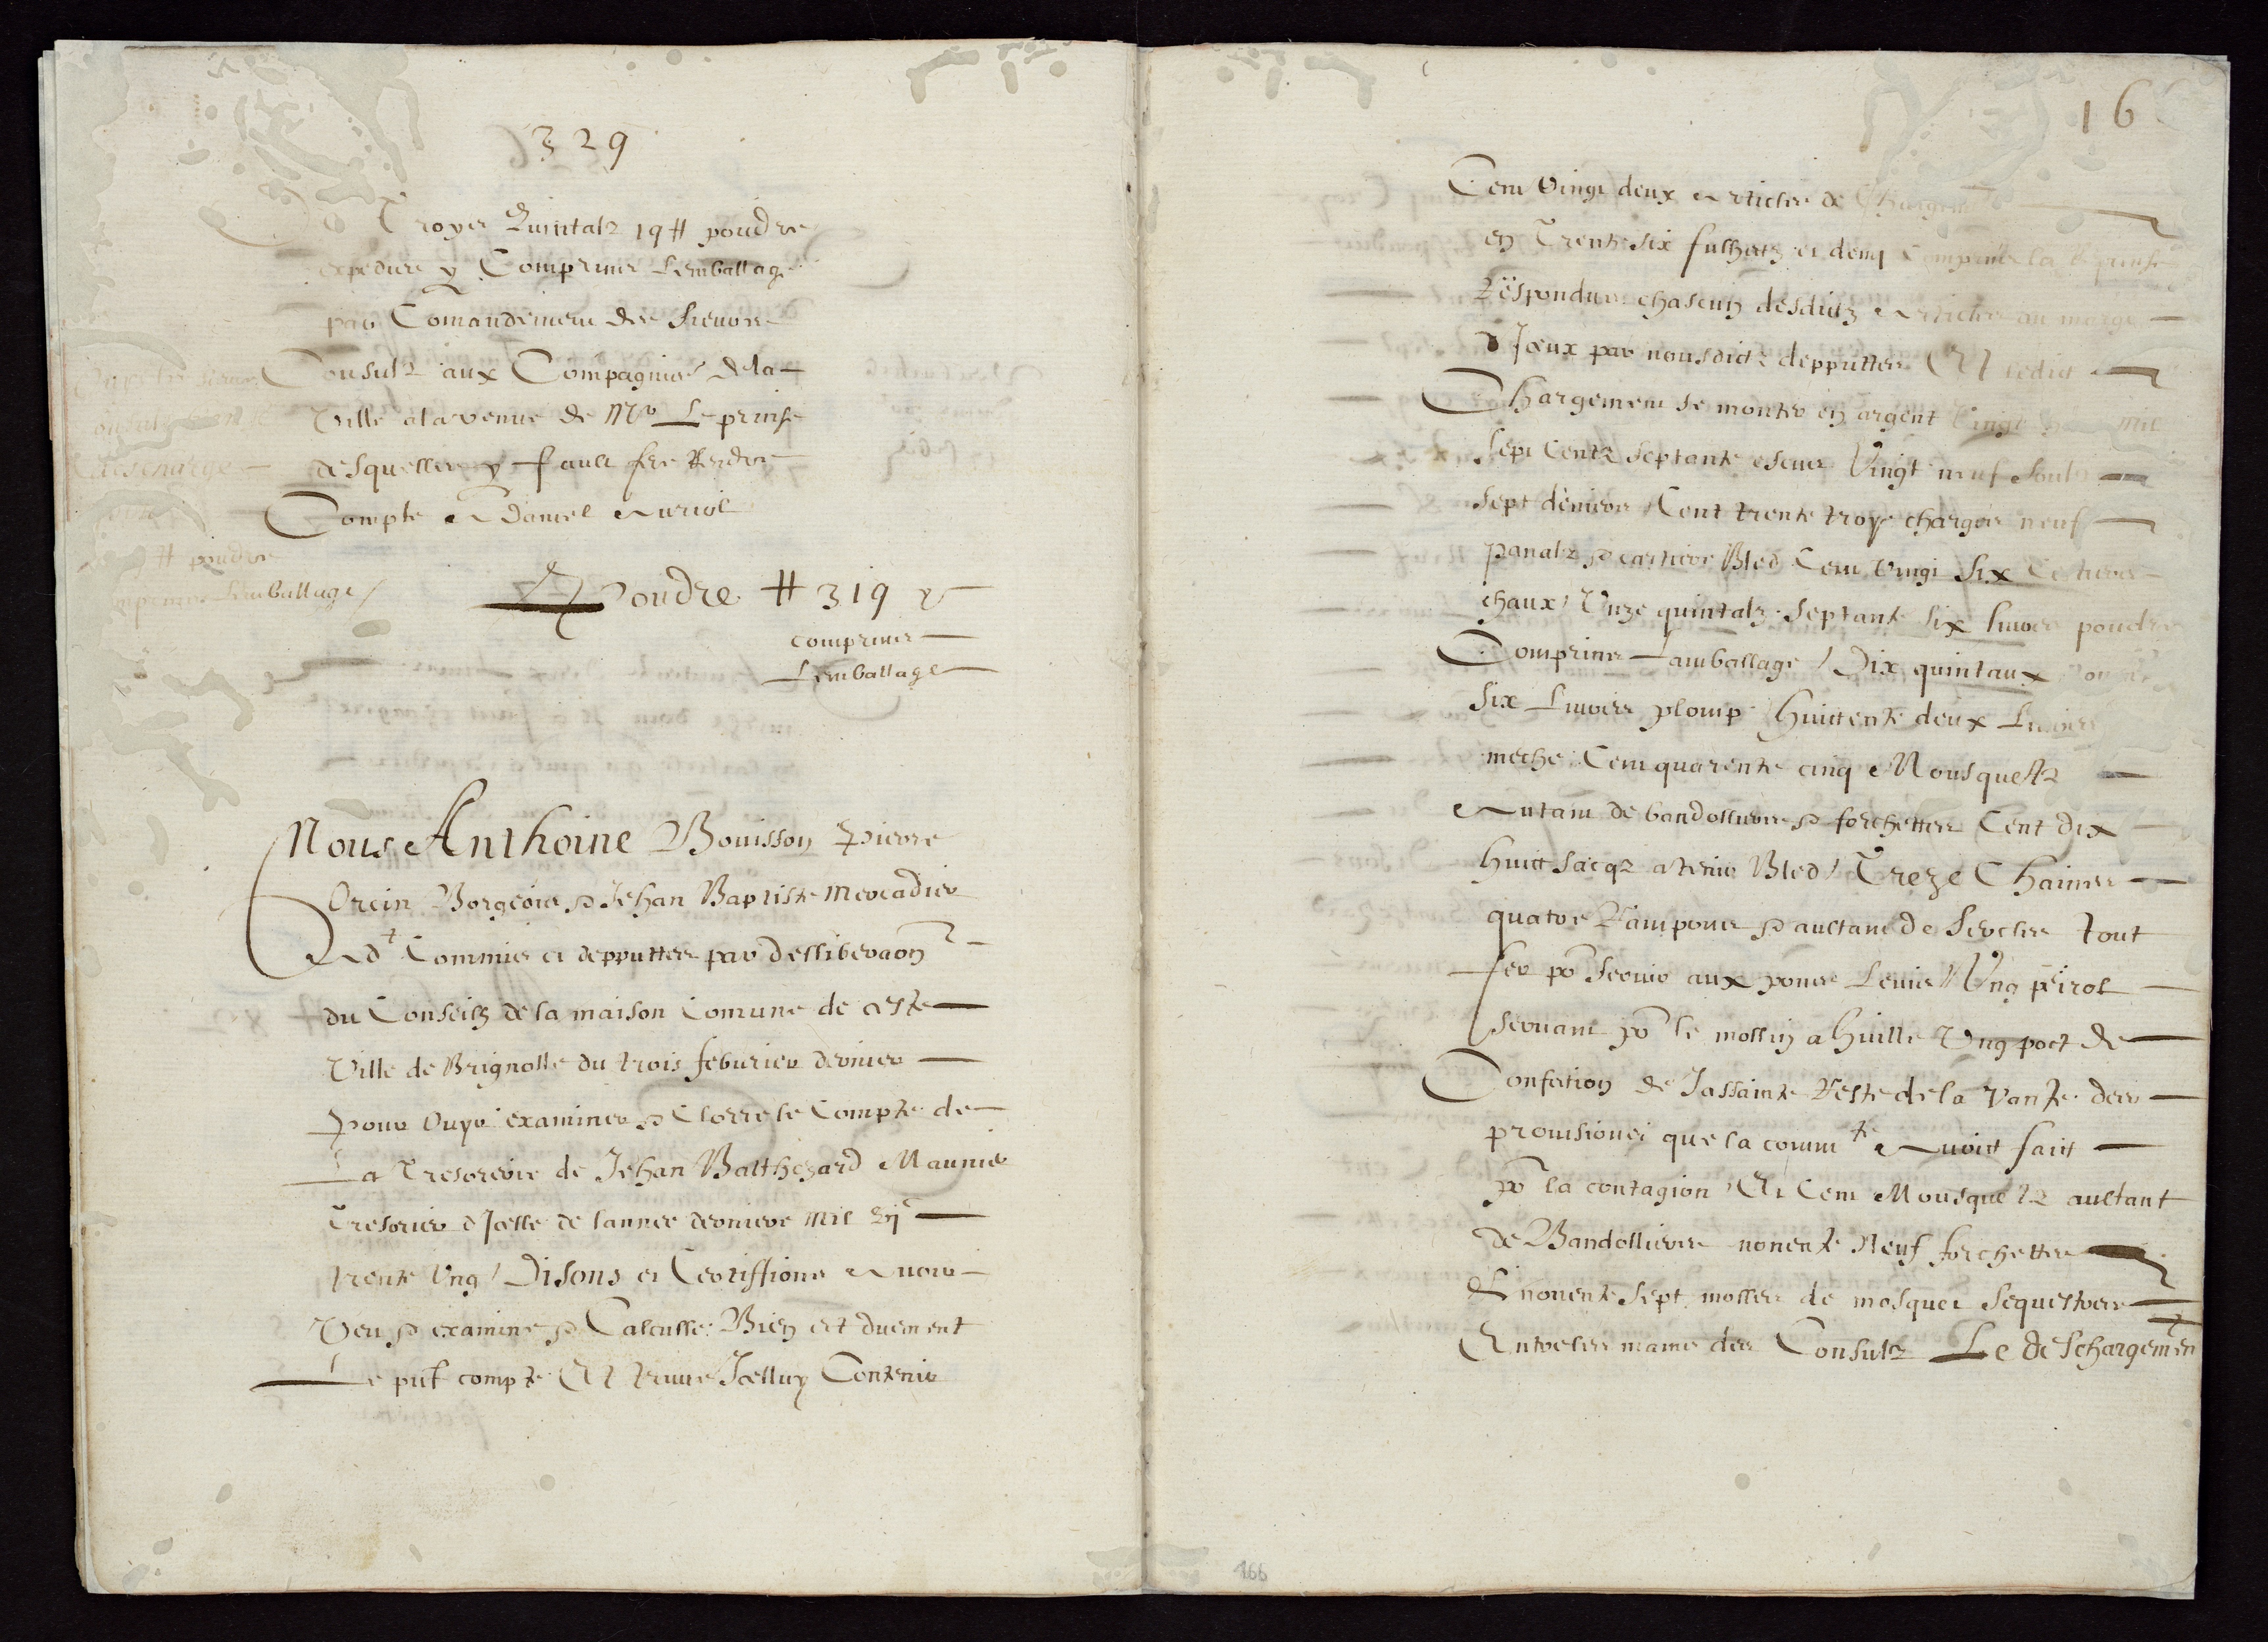 329
Troyes Quintalz 19 ₶ poudre
expedure y Comprins Lemballage
par Comandement des sieurs
Consulz aux Compagnies de la
Ville a la venue de Mr Le prinse
desquelles y fault fere Rendre
Compte A Daniel Auriol
₶ poudre
Lemballage /
Poudre ₶ 319 y
comprins
Lemballage
Nous Anthoine Bouisson Pierre
Orcin Borgeois et Jehan Baptiste Mercadier
Adt Commis et depputtes par delliberaon
du Conseilh de la maison Comune de ceste
Ville de Brignolle du trois feburier dernier
Pour Ouyr examiner et Clorre le Compte de
La Tresorerie de Jehan Balthezard Maunier
Tresorier d'Icelle de lannee derniere mil vjc
trente Ung / Disons et Certiffions Avoir
Veu et examine et Calculle Bien et duement
Le pnt compte Et treuve Icelluy Contenir
16
Cent Vingt deux Articles de Chargemt
en Trente six fulhetz et demy Comprins la
Respondue chascun desdictz Articles au marge
d'Iceux par nousdictz depputtes Et ledict
Chargement se monter en argent Vingt mil
sept Centz septante escus Vingt neuf soulz
sept deniers Cent trente troys charges neuf
panalz et cartiere Bled Cent Vingt six Cestiers
chaux / Unze quintalz septante six livres poudre
Comprins Lamballage / Dix quintaux
six Livres plomp huictente deux Livres
meche Cent quarente cinq Mousquetz
Autant de bandollieres et forchettes Cent dix
huict sacqz a tenir Bled / Treze Chaines
quatre Rampones et aultant de Sercles tout
fer po servir aux pons Levis // Ung peirol
servant po le mollin a huille Ung poct de
Confetion de Jassainte Reste de la Vante des
provisions que la commte Avoict faict
po la contagion / Et Cent Mousquetz aultant
de Bandollieres nonente Neuf forchettes
Et nonente sept molles de mosquet sequestres
Entre les mains des Consulz Le deschargemen
166